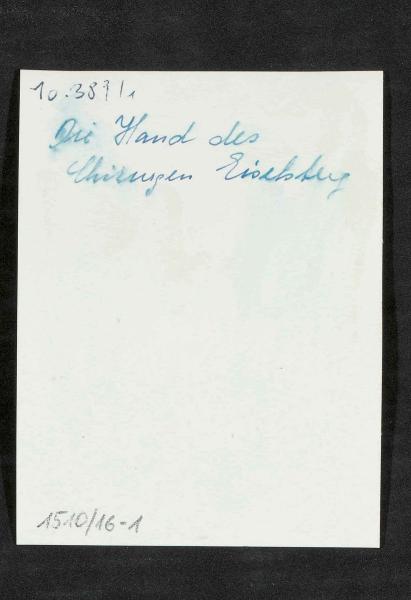 10.387/1
Die Hand des
Chirurgen Eiselsberg
1510/16-1